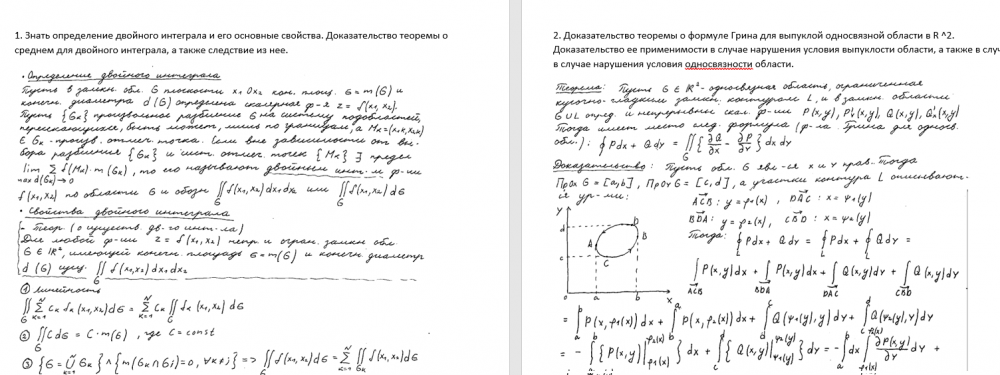 1. Знать определение двойного интеграла и его основные свойства. Доказательство теоремы о
среднем для двойного интеграла, а также следствие из нее.
• Определение двойного интеграла
Пусть в замкн. обл. G плоскости x₁Ox₂ кон. площ. G = m(G) и
конечн. диаметра d(G) определена скалярная ф-я z = f(x₁, x₂).
Пусть {Gₖ} произвольное разбиение G на систему подобластей,
пересекающихся, быть может, лишь по границам, а Mₖ = (x₁ₖ, x₂ₖ)
∈ Gₖ - произв. отмеч. точка. Если вне зависимости от вы-
бора разбиения {Gₖ} и сист. отмеч. точек {Mₖ} ∃ предел
lim Σ f(Mₖ) · m(Gₖ), то его называют двойным инт-м ф-ии
max d(Gₖ) → 0
f(x₁, x₂) по области G и обозн ∬ f(x₁, x₂) dx₁dx₂ или ∬ f(x₁, x₂) dG
G G
• Свойства двойного интеграла
Теор. (о существ. дв-го инт-ла)
Для любой ф-ии z = f(x₁, x₂) непр и огран. замкн обл
G ∈ ℝ², имеющей конечн. площадь G = m(G) и конечн. диаметр
d(G) сущ. ∬ f(x₁, x₂) dx₁dx₂
G
① линейность
∬ Σ Cₖ fₖ(x₁, x₂) dG = Σ Cₖ ∬ fₖ(x₁, x₂) dG
② ∬ C dG = C · m(G), где C = const
③ {G = ∪ Gₖ} ∧ {m(Gₖ ∩ Gⱼ) = 0, ∀k ≠ j} => ∬ f(x₁, x₂) dG = Σ ∬ f(x₁, x₂) dG
2. Доказательство теоремы о формуле Грина для выпуклой односвязной области в R ^2.
Доказательство ее применимости в случае нарушения условия выпуклости области, а также в слу
в случае нарушения условия односвязности области.
Теорема: Пусть G ∈ ℝ² - односвязная область, ограниченная
кусочно-гладким замкн. контуром L, и в замкн. области
G ∪ L опред. и непрерывны скал. ф-ии P(x, y), P'y(x, y), Q(x, y), Q'x(x, y)
Тогда имеет место след. формула (ф-ла. Грина для односв.
обл.): ∮ Pdx + Qdy = ∬ {∂Q/∂x - ∂P/∂y} dx dy
Доказательство: Пусть обл. G явл-ся x и y прав. Тогда
Пр₀ₓ G = [a, b], Пр₀ᵧ G = [c, d], а участки контура L описывают-
ся ур-ми: ACB: y = φ₁(x), DAC: x = ψ₁(y)
BDA: y = φ₂(x), CBD: x = ψ₂(y)
Тогда: ∮ Pdx + Qdy = ∮ Pdx + ∮ Qdy =
Y
d
D
A
B
C
c
a
b
X
∫ P(x, y)dx + ∫ P(x, y)dx + ∫ Q(x, y)dy + ∫ Q(x, y)dy
ACB BDA DAC CBD
= ∫ P(x, φ₁(x)) dx + ∫ P(x, φ₂(x)) dx + ∫ Q(ψ₁(y), y) dy + ∫ Q(ψ₂(y), y) dy
= - ∫ {P(x, y)|φ₂(x) φ₁(x)} dx + ∫ {Q(x, y)|ψ₂(y) ψ₁(y)} dy = - ∫ dx ∫ ∂P(x, y)/∂y dy +